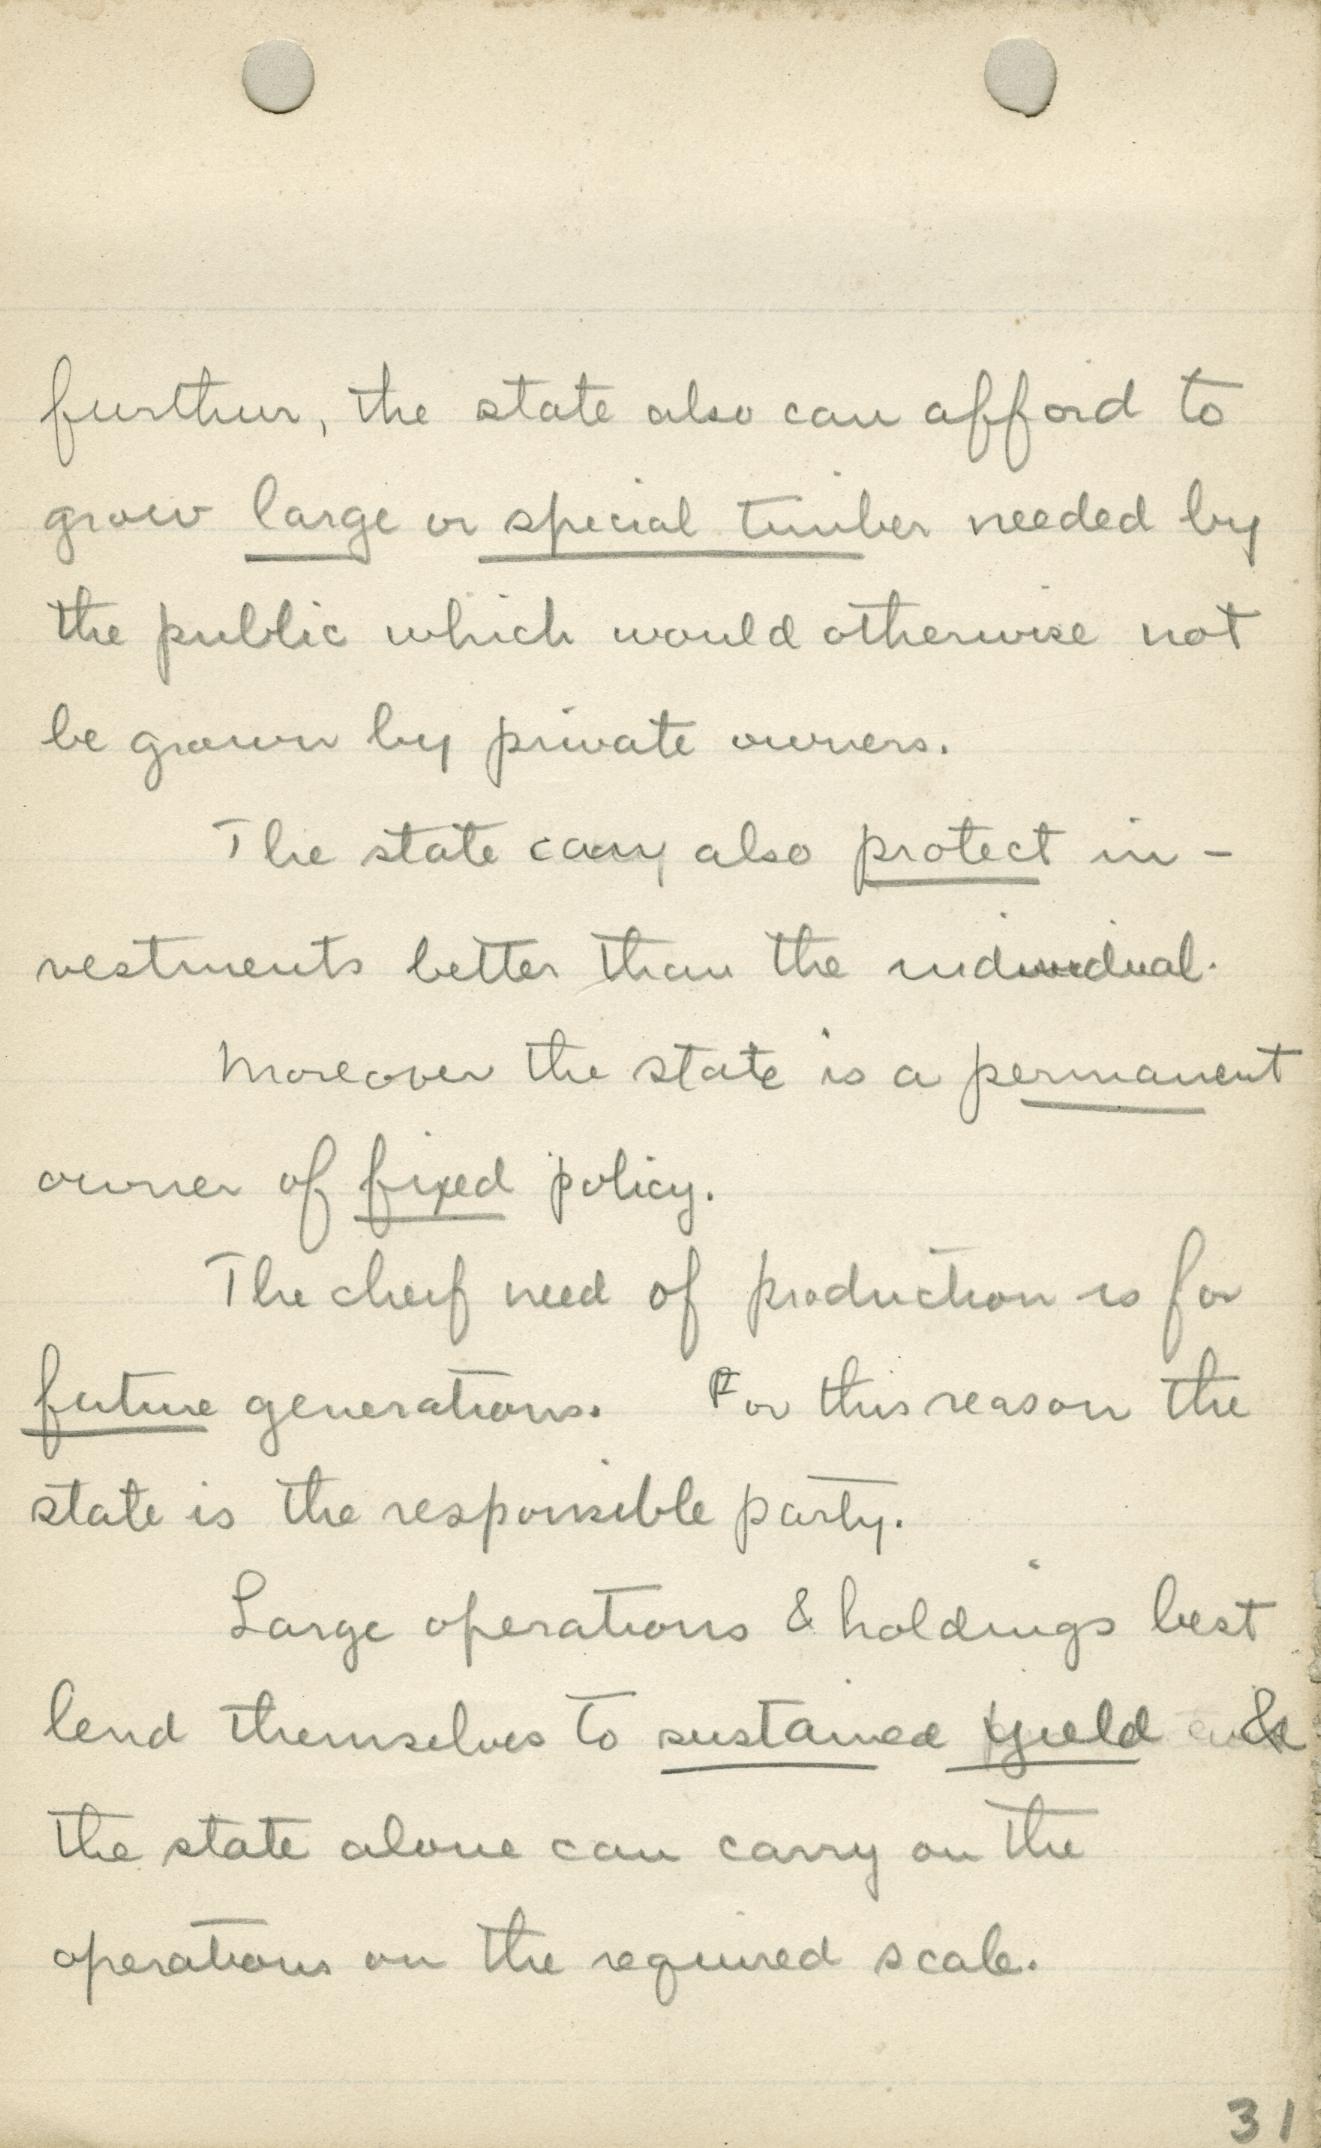 further, the state also can afford to
grow large or special timber needed by
the public which would otherwise not
be grown by private owners.
The state can also protect in-
vestments better than the individual.
Moreover the state is a permanent
owner of fixed policy.
The cheif need of production is for
future generations. For this reason the
state is the responsible party.
Large operations & holdings best
lend themselves to sustained yield &
the state alone can carry on the
operations on the required scale.
31